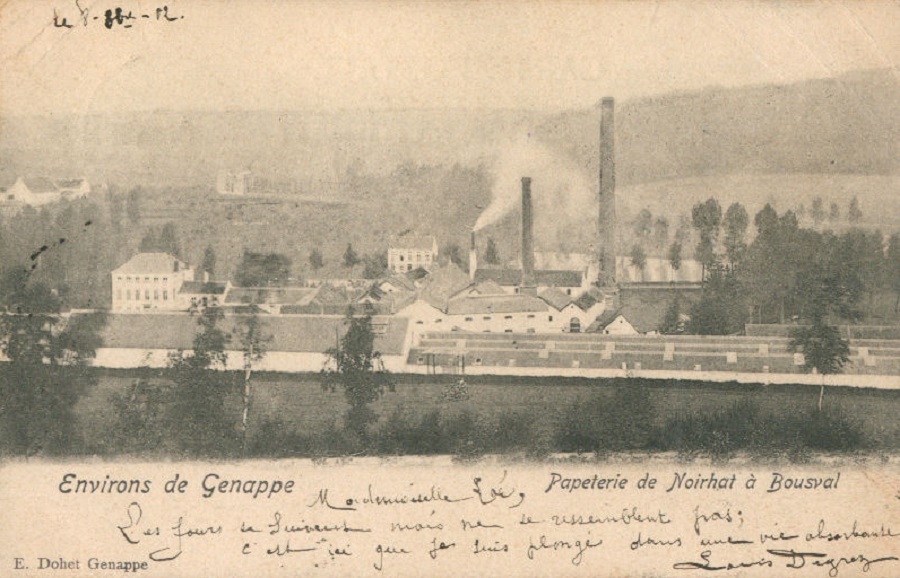 le 8 - 8bre - 02.
Environs de Genappe
Papeterie de Noirhat à Bousval
Mademoiselle Zoé,
Les jours se suivent mais ne se ressemblent pas;
c'est ici que je suis plongé dans une vie absorbante
E. Dohet Genappe
Louis